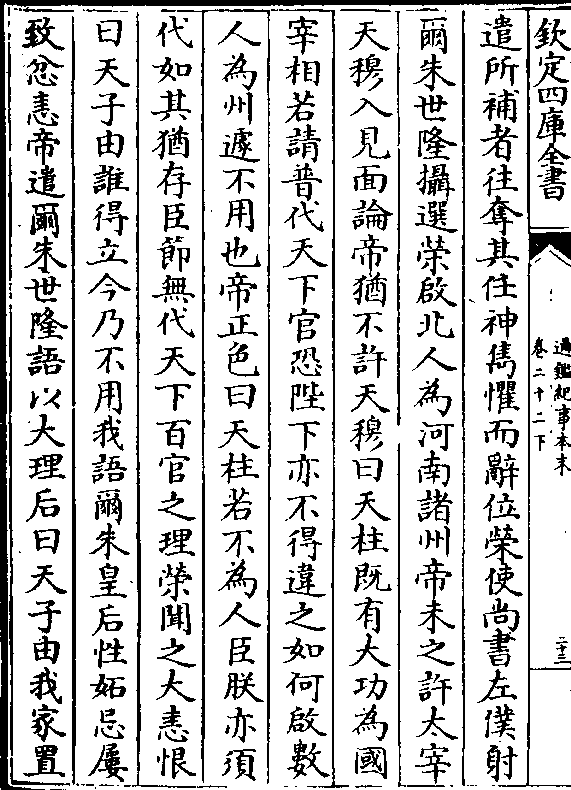 欽定四庫全書
通鑑紀事本末
卷二十二下
二十三
遣所補者往奪其任神雋懼而辭位榮使尚書左僕射
爾朱世隆攝選榮啟北人為河南諸州帝未之許太宰
天穆入見面論帝猶不許天穆曰天柱既有大功為國
宰相若請普代天下官恐陛下亦不得違之如何啟數
人為州遽不用也帝正色曰天柱若不為人臣朕亦須
代如其猶存臣節無代天下百官之理榮聞之大恚恨
曰天子由誰得立今乃不用我語爾朱皇后性妬忌屢
致忿恚帝遣爾朱世隆語以大理后曰天子由我家置